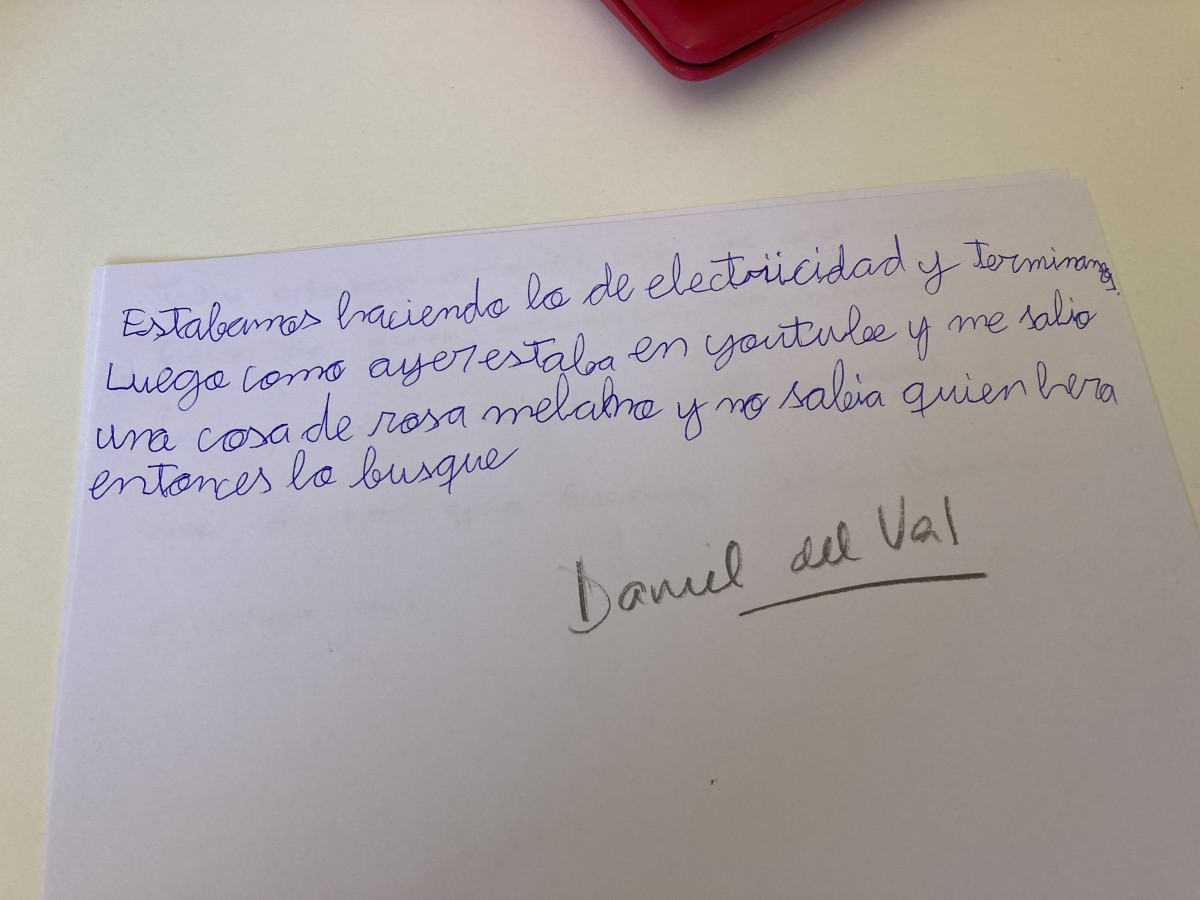 Estabamos haciendo lo de electricidad y terminamos.
Luego como ayer estaba en youtube y me salio
una cosa de rosa melano y no sabia quien hera
entonces lo busque
Daniel del Val